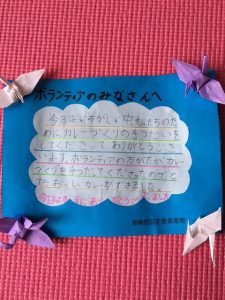 ボランティアのみなさんへ
今日はいそがしい中、私たちのた
めに、カレーづくりの手つだいを
してくださって、ありがとうござ
います。ボランティアの方がカレー
づくりを手つだってくださったので
とてもおいしいカレーができました。
今日は本当にありがとうございました